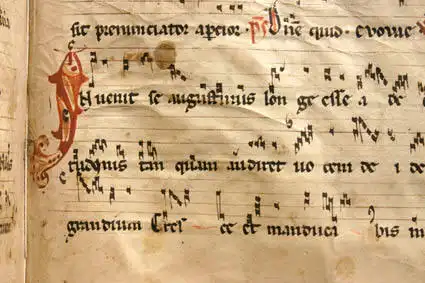 sit prenunciator apcior · ps Dn̄e quid · euouae
Inuenit se augustinus lon ge esse a de
tudinis tan quam audiret uo cem de
grandium Cres ce et manduca bis m